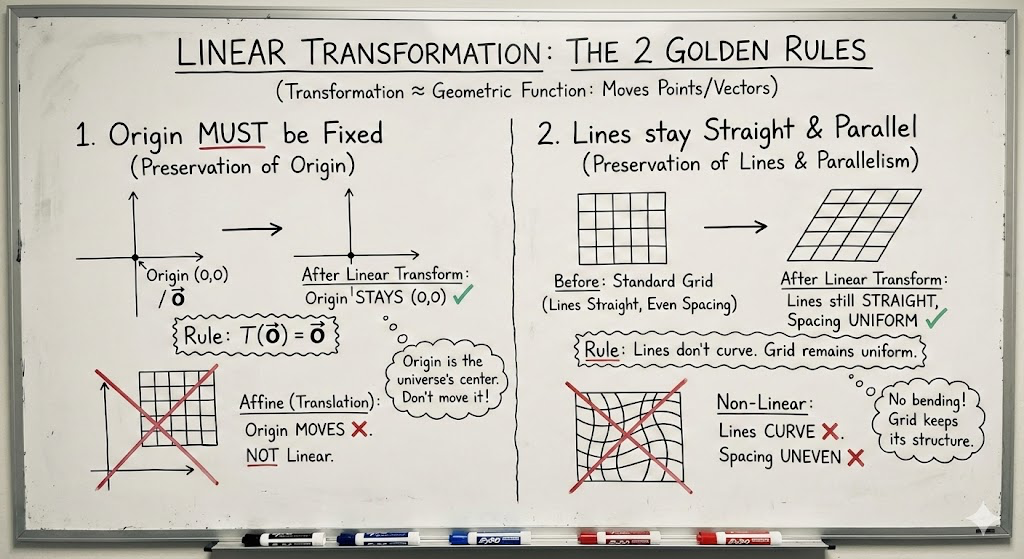 LINEAR TRANSFORMATION: THE 2 GOLDEN RULES
(Transformation ≈ Geometric Function: Moves Points/Vectors)
1. Origin MUST be Fixed
(Preservation of Origin)
Origin (0,0)
/ o⃗
After Linear Transform:
Origin STAYS (0,0) ✓
Rule: T(o⃗) = o⃗
Origin is the
universe's center.
Don't move it!
Affine (Translation):
Origin MOVES ✗.
NOT Linear.
2. Lines stay Straight & Parallel
(Preservation of Lines & Parallelism)
Before: Standard Grid
(Lines Straight, Even Spacing)
After Linear Transform:
Lines still STRAIGHT,
Spacing UNIFORM ✓
Rule: Lines don't curve. Grid remains uniform.
No bending!
Grid keeps
its structure.
Non-Linear:
Lines CURVE ✗.
Spacing UNEVEN ✗
EXPO